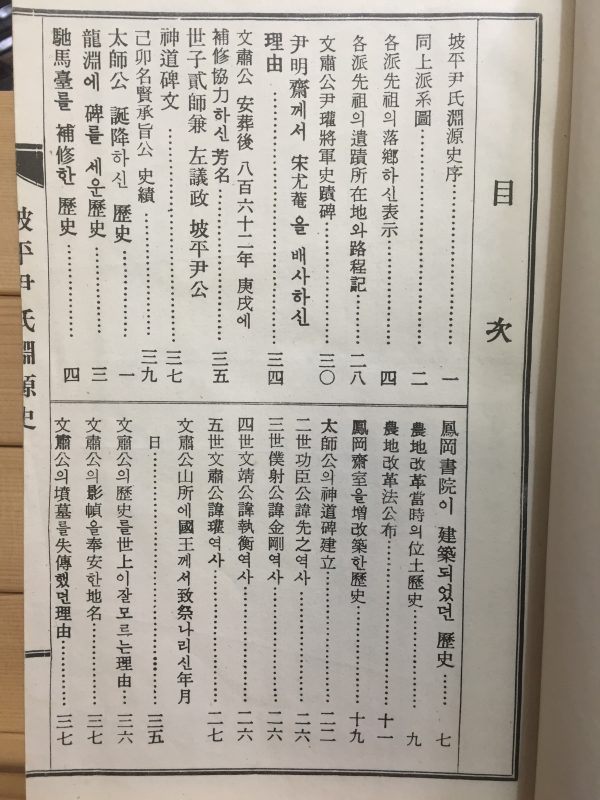 目次
坡平尹氏淵源史序……………一
同上派系圖……………二
各派先祖의落鄕하신表示……………四
各派先祖의遺蹟所在地와路程記……………二八
文肅公尹瓘將軍史蹟碑……………三〇
尹明齋께서 宋尤菴을 배사하신
理由……………三四
文肅公 安葬後 八百六十二年 庚戌에
補修協力하신 芳名……………三五
世子貳師兼 左議政 坡平尹公
神道碑文……………三七
己卯名賢承旨公 史績……………三九
太師公 誕降하신 歷史……………一
龍淵에 碑를 세운歷史……………三
馳馬臺를 補修한 歷史……………四
鳳岡書院이 建築되었던 歷史……………七
農地改革當時의位土歷史……………九
農地改革法公布……………十一
鳳岡齋室을增改築한歷史……………十九
太師公의神道碑建立……………二二
二世功臣公諱先之역사……………二六
三世僕射公諱金剛역사……………二六
四世文靖公諱執衡역사……………二六
五世文肅公諱瓘역사……………二七
文肅公山所에國王께서致祭나리신年月
日……………三五
文肅公의歷史를世上이잘모르는理由……………三六
文肅公의影幀을奉安한地名……………三七
文肅公의墳墓를失傳했던理由……………三七
坡平尹氏淵源史